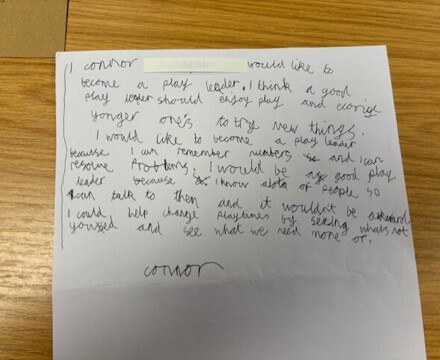 I connor would like to
become a play leader. I think a good
play leader should enjoy play and
yonger one's to try new things.
I would like to become a play leader
because I can remember numbers and I can
resolve problems. I would be a good play
leader because I know alots of people so
I can talk to them and it wouldn't be
I could help change playtimes by seeing whats not
yousd and see what we need none of.
connor